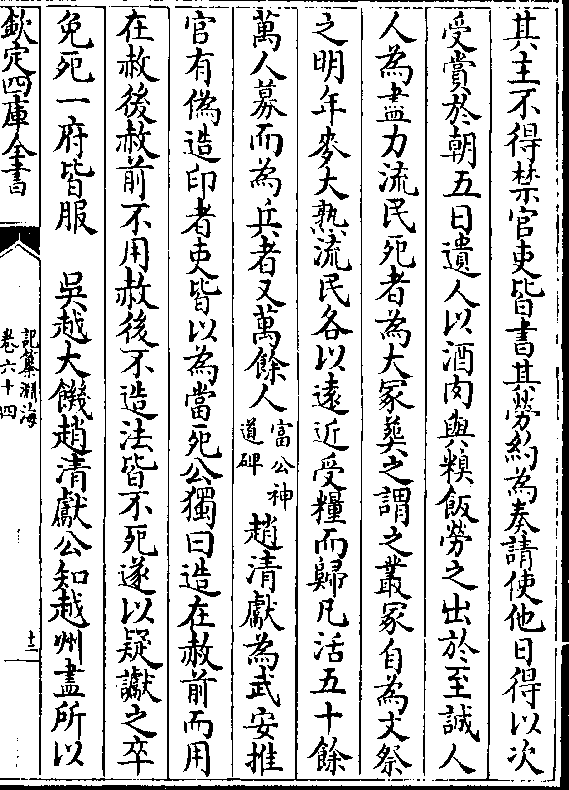 其主不得禁官吏皆書其勞約為奏請使他日得以次
受賞於朝五日遺人以酒肉與糗飯勞之出於至誠人
人為盡力流民死者為大冢葬之謂之叢冢自為文祭
之明年麥大熟流民各以遠近受糧而歸凡活五十餘
萬人募而為兵者又萬餘人富公神道碑趙清獻為武安推
官有偽造印者吏皆以為當死公獨曰造在赦前而用
在赦後赦前不用赦後不造法皆不死遂以疑讞之卒
免死一府皆服 吳越大饑趙清獻公知越州盡所以
欽定四庫全書
記纂淵海
卷六十四
十二